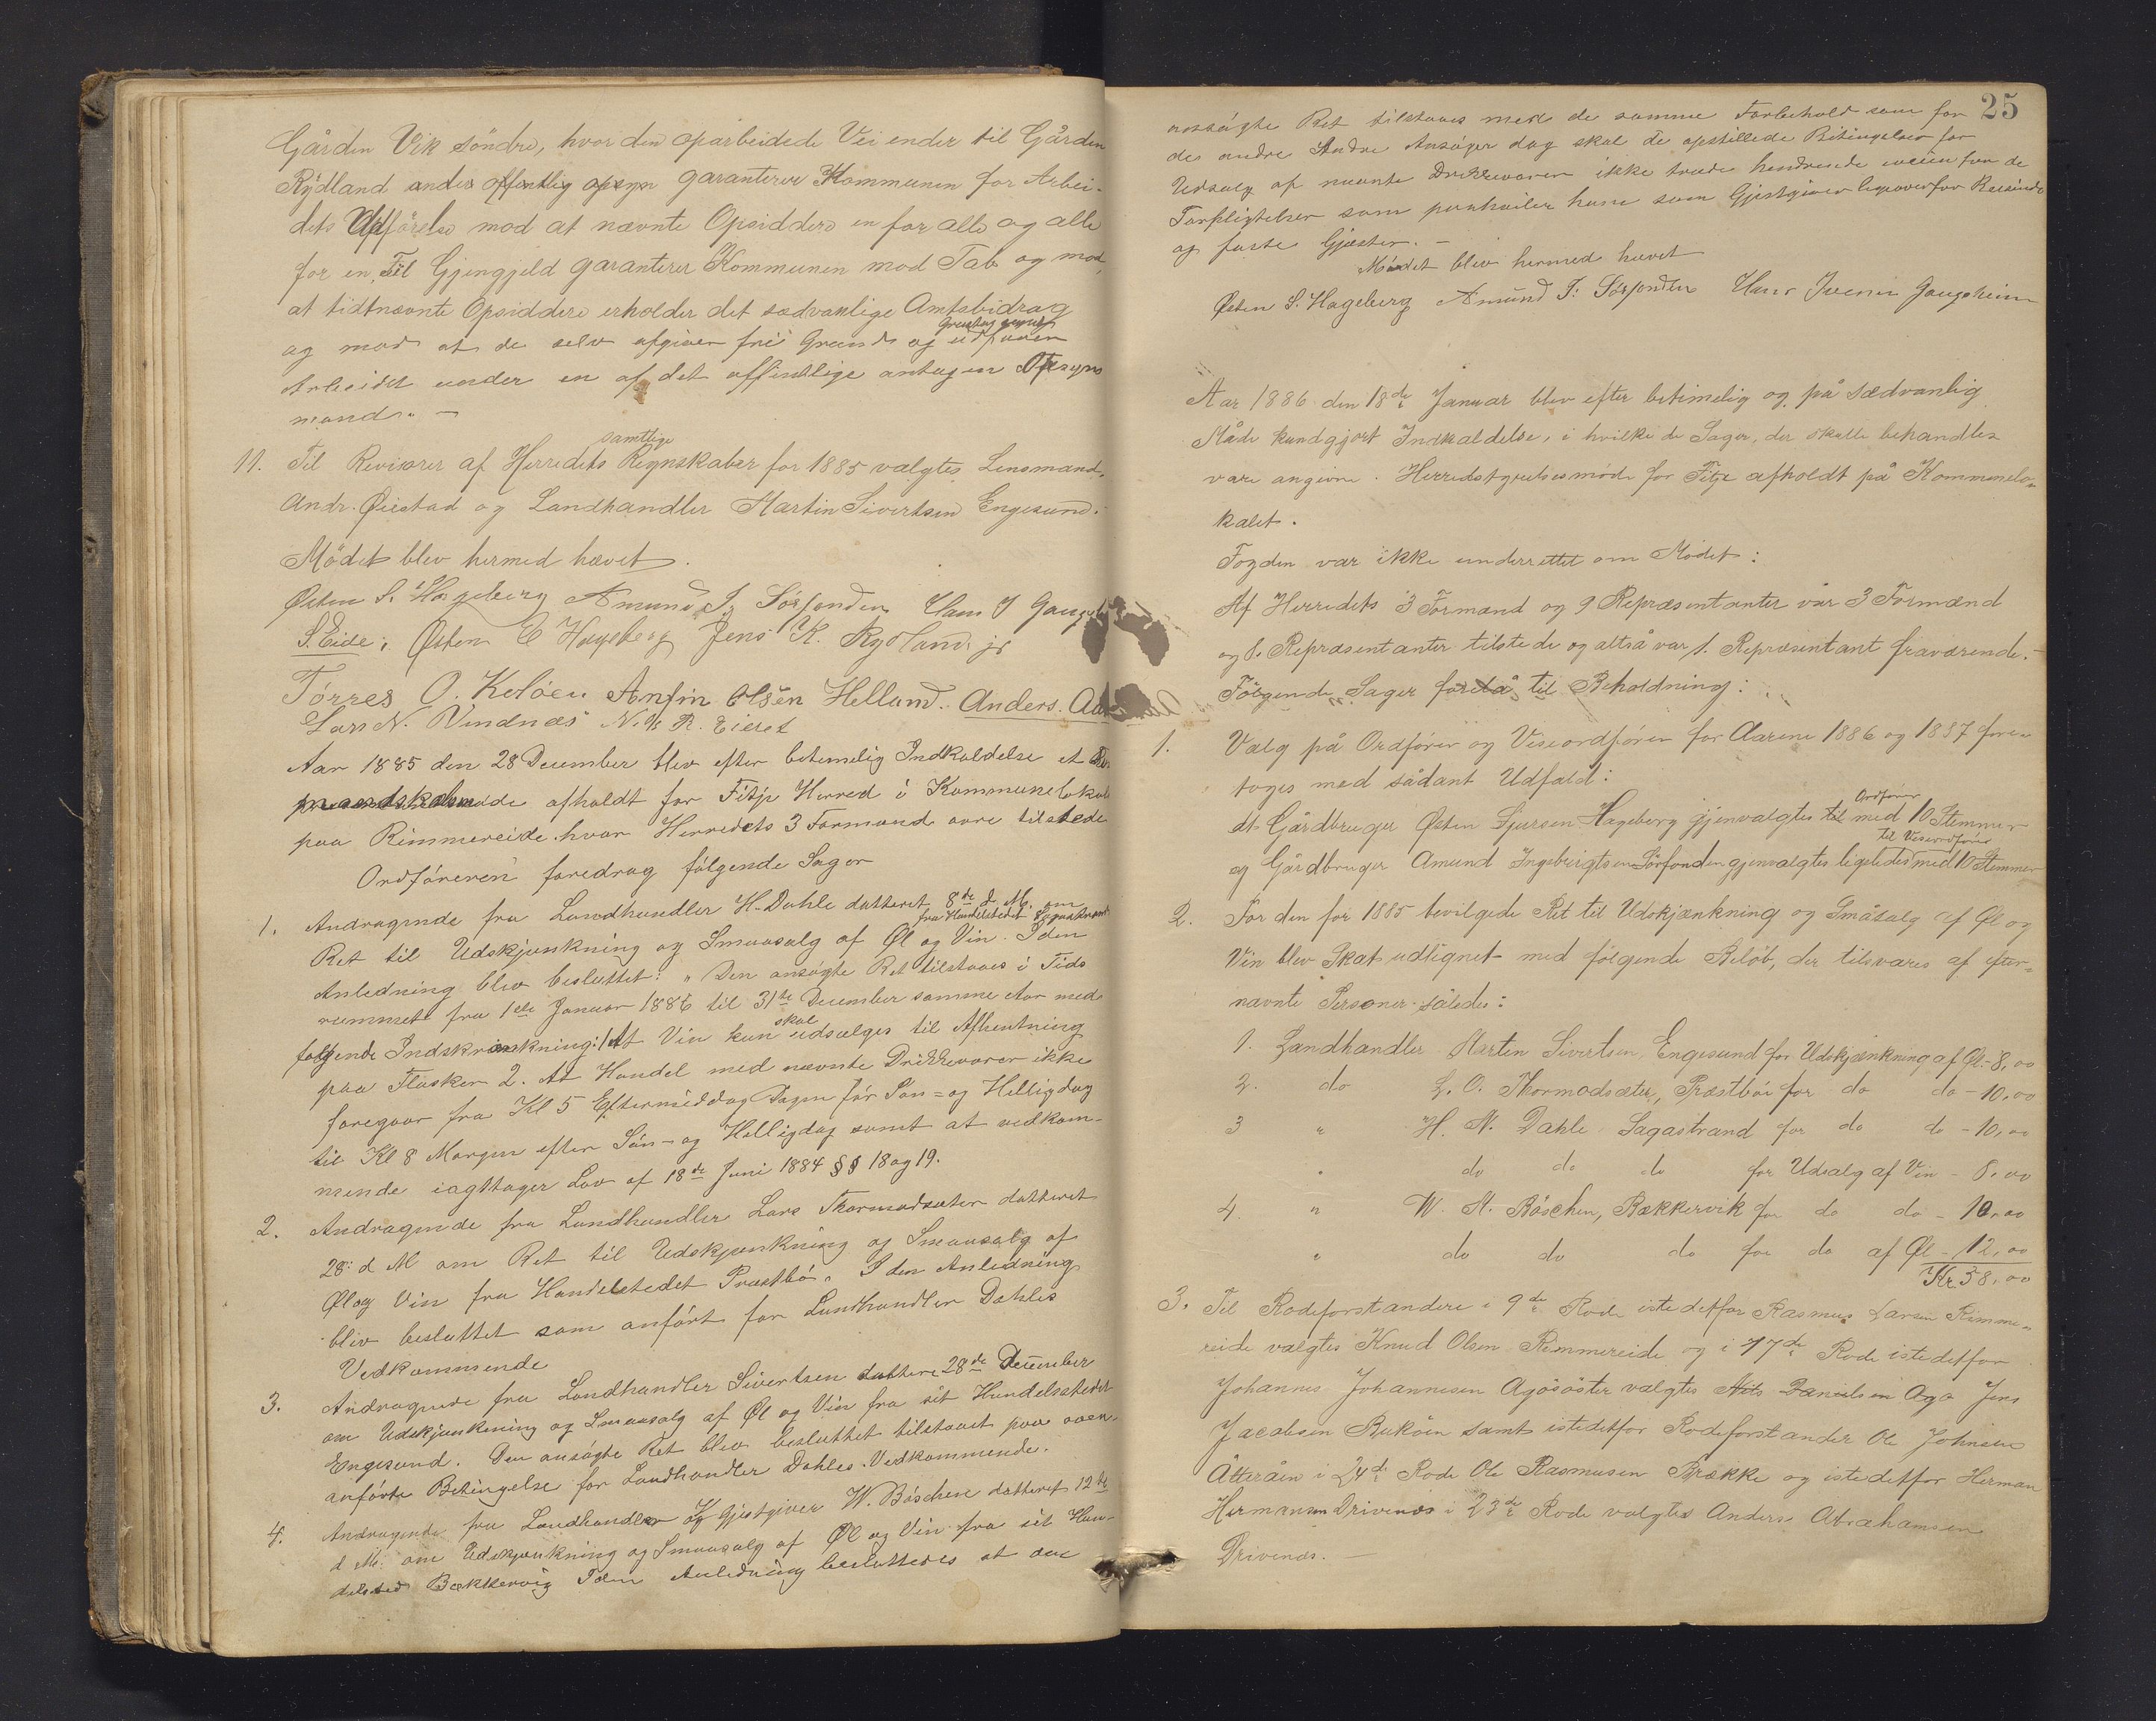 Gården Vik söndre, hvor den oparbeidede Vei ender til Gården
Rydland under offentlig opsyn garanterer Kommunen for Arbei-
dets Udförelse mod at nævnte Opsiddere en for alle og alle
for en, Til Gjengjeld garanterer Kommunen mod Tab og mod,
at tidtnævnte Opsiddere erholder det sædvanlige Amtsbidrag
og mod at de selv afgiver fri Grund og udfører
Arbeidet under en af det offentlige antagen Opsyns
mand. —
samtlige
11. Til Revisorer af Herredets Regnskaber for 1885 valgtes Lensmand
Andr. Øiestad og Landhandler Martin Sivertsen Engesund.
Mödet blev hermed hævet.
Østen S. Hageberg Amund I. Sörfonden Hans I Gaugsh
S. Eide, Østen E Hageberg Jens K. Rydland jr
Törres O. Kelöen Anfin Olsen Helland. Anders. Aa
Lars N. Vindnæs N. H R. Eierot
Aar 1885 den 28 December blev efter betimelig Indkaldelse et For
mandskabsmöde afholdt for Fitje Herred i Kommunelokal
paa Rimmereide hvor Herredets 3 Formænd vare tilstede
Ordföreren foredrag fölgende Sager
1. Andragende fra Landhandler H. Dahle datteret 8de d. M. om
fra Handelstedet Sagastrand
Ret til Udskjænkning og Smaasalg af Øl og Vin. I den
Anledning blev besluttet: " Den ansøgte Ret tilstaaes i Tids
rummet fra 1ste Januar 1886 til 31te December samme Aar med
skal
følgende Indskrænkning: 1 At Vin kun udsælges til Afhentning
paa Flasker 2. At Handel med nævnte Drikkevarer ikke
foregaar fra Kl 5 Eftermiddag Dagen för Søn- og Helligdag
til Kl 8 Morgen efter Sön- og Helligdag samt at vedkom-
mende iagttager Lov af 18de Juni 1884 §§ 18 og 19.
2. Andragende fra Landhandler Lars Thormodsæter datteret
28. d M om Ret til Udskjænkning og Smaasalg af
Øl og Vin fra Handelstedet Præstbö. I den Anledning
blev besluttet som anfört for Landhandler Dahles
Vedkommende
3. Andragende fra Landhandler Sivertsen dattere 28de December
om Udskjænkning og Smaasalg af Øl og Vin fra sit Handelsstedet
Engesund. Den ansøgte Ret blev besluttet tilstaaet paa oven-
anförte Betingelse for Landhandler Dahles Vedkommende.
4. Andragende fra Landhandler og Gjestgiver W. Böschen datteret 12te
d M. om Udskjænkning og Smaasalg af Øl og Vin fra sit Han-
delsted Bækkervig I den Anledning besluttedes at den
25
ansøgte Ret tilstaaes med de samme Forbehold som for
de andre Andre Ansøger dog skal de opstillede Bitingelser for
Udsalg af nævnte Drikkevarer ikke træde hindrende iveien for de
Forpligtelser som paahviler ham som Gjestgiver ligeoverfor Reisende
og faste Gjæster. —
Mödet blev hermed hævet
Østen S. Hageberg Amund I. Sörfonden Hans Iversen Gaugsheim
Aar 1886 den 18de Januar blev efter betimelig og på sædvanlig
Måde kundgjort Indkaldelse, i hvilke de Sager, der skulle behandles
vare angivne. Herredstyrelsesmöde for Fitje afholdt på Kommunelo-
kalet.
Fogden var ikke underrettet om Mödet:
Af Herredets 3 Formænd og 9 Repræsentanter var 3 Formænd
og 8. Repræsentanter tilstede og altså var 1. Repræsentant fraværende. —
Fölgende Sager forelå til Behandling:
1. Valg på Ordförer og Viseordförer for Aarene 1886 og 1887 fore-
toges med sådant Udfald:
Ordförer
at Gårdbruger Østen Sjursen Hageberg gjenvalgtes til med 10 Stemmer
til Viseordförer
og Gårdbruger Amund Ingebrigtsen Sörfonden gjenvalgtes ligeledes med 10 Stemmer
2. For den for 1885 bevilgede Ret til Udskjænkning og Småsalg af Øl og
Vin blev Skat udlignet med fölgende Belöb, der tilsvares af efter-
nævnte Personer således:
1. Landhandler Martin Sivertsen, Engesund for Udskjænkning af Øl - 8,00
2. do L. O. Thormodsæter, Præstbö for do do - 10,00
3 " H. N. Dahle Sagastrand for do do - 10,00
" do do do for Udsalg af Vin - 8,00
4. " W. A. Böschen, Bækkervik for do do - 10,00
" do do do for do af Øl - 12,00
Kr 58,00
3. Til Rodeforstandere i 9de Rode istedetfor Rasmus Larsen Rimme-
reide valgtes Knud Olsen Rimmereide og i 17de Rode istedetfor
Johannes Johannesen Agösöster valgtes Nils Danielsen Aga Jens
Jacobsen Ruköen samt istedetfor Rodeforstander Ole Johnsen
Åtteråen i 24de Rode Ole Rasmusen Brække og istedetfor Herman
Hermansen Drivenæs i 23de Rode valgtes Anders Abrahamsen
Drivenæs. —